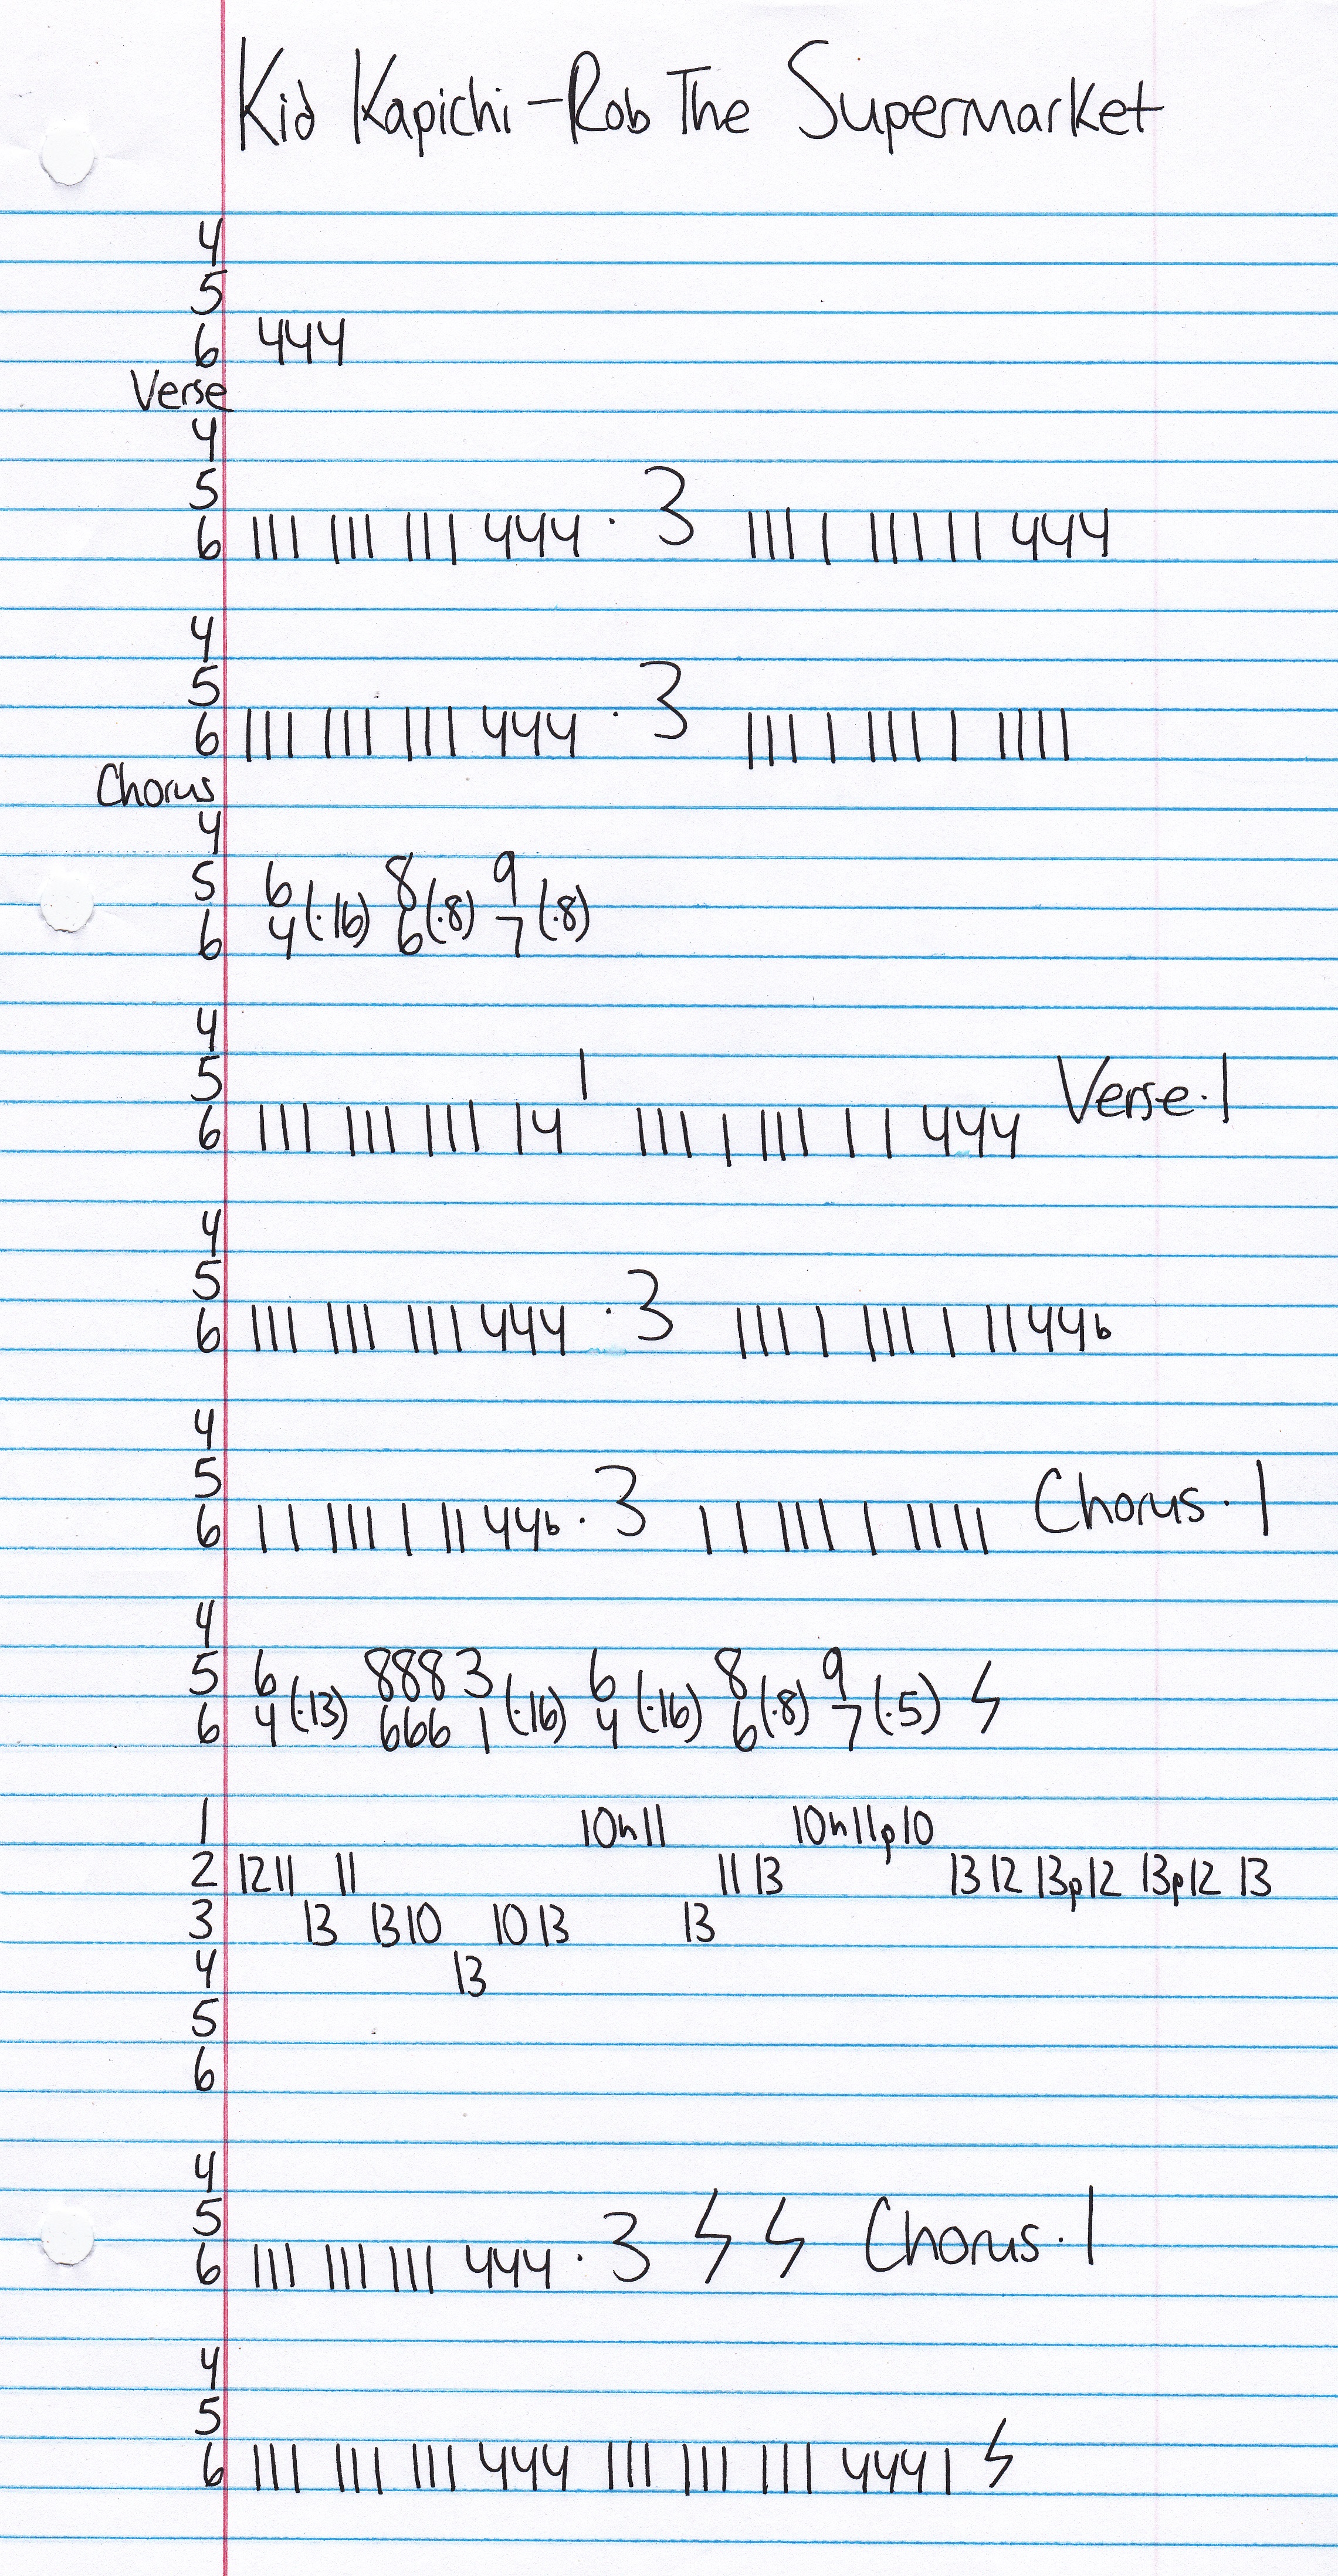 Kid Kapichi - Rob The Supermarket
4
5
6 444
Verse
4
5
6 111 111 111 444 · 3 111 1 111 1 1 444
4
5
6 111 111 111 444 · 3 111 1 111 1 1111
Chorus
4
5 6 8 9
6 4 (·16) 6 (·8) 7 (·8)
4
5 1
6 111 111 111 14 111 1 111 1 1 444 Verse · 1
4
5
6 111 111 111 444 · 3 111 1 111 1 11 44b
4
5
6 1 1 111 1 11 44b · 3 1 1 111 1 1111 Chorus · 1
4
5 6 888 3 6 8 9
6 4 (·13) 666 1 (·16) 4 (·16) 6 (·8) 7 (·5)
1 10h11 10h11p10
2 12 11 11 11 13 13 12 13p12 13p12 13
3 13 13 10 10 13 13
4 13
5
6
4
5
6 111 111 111 444 · 3 Chorus · 1
4
5
6 111 111 111 444 111 111 111 444 1